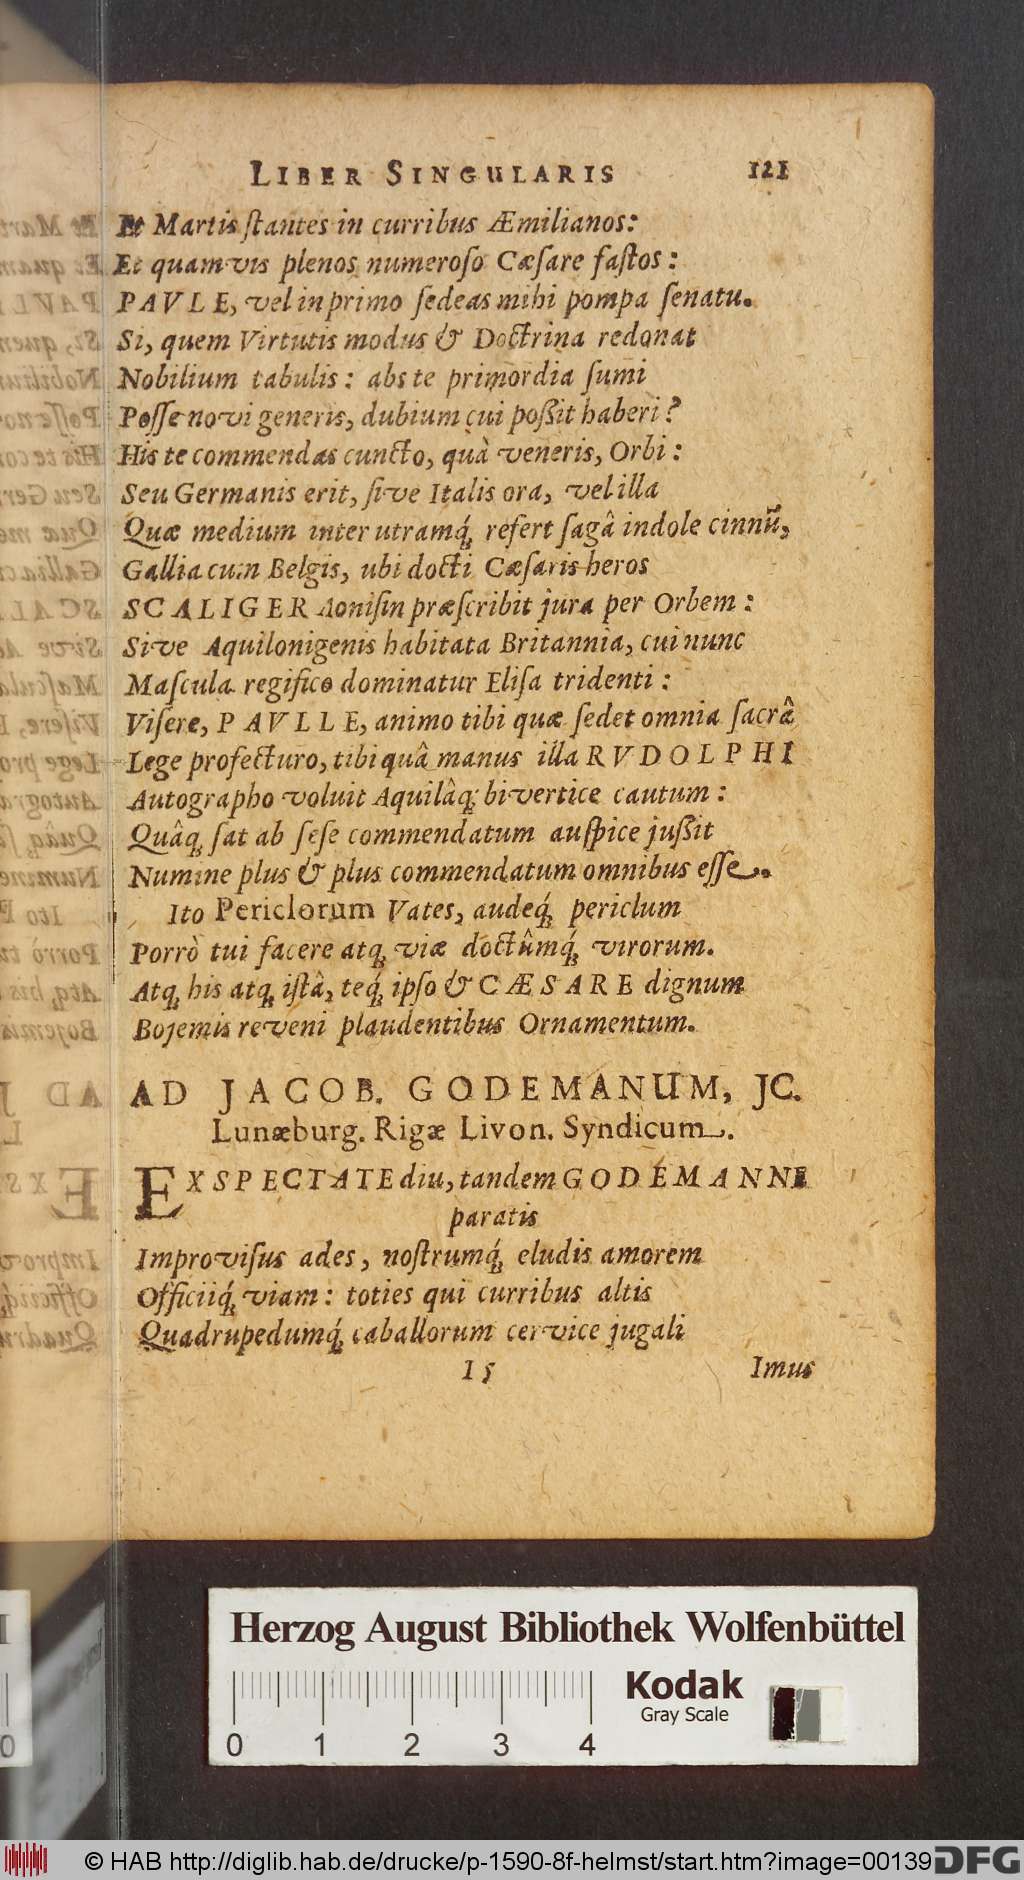 LIBER SINGULARIS 121
Et Martis ſtantes in curribus Æmilianos:
Et quamvis plenos numeroſo Cæſare faſtos:
PAVLE, vel in primo ſedeas mihi pompa ſenatu.
Si, quem Virtutis modus & Doctrina redonat
Nobilium tabulis: abs te primordia ſumi
Poſſe novi generis, dubium cui poßit haberi?
His te commendas cuncto, quà veneris, Orbi:
Seu Germanis erit, ſive Italis ora, vel illa
Quæ medium inter utramq́; refert ſagâ indole cinnū,
Gallia cum Belgis, ubi docti Cæſaris heros
SCALIGER Aoniſin præſcribit jura per Orbem:
Sive Aquilonigenis habitata Britannia, cui nunc
Maſcula regifico dominatur Eliſa tridenti:
Viſere, PAVLLE, animo tibi quæ ſedet omnia ſacrâ
Lege profecturo, tibi quâ manus illa RVDOLPHI
Autographo voluit Aquilâq; bivertice cautum:
Quâq; ſat ab ſeſe commendatum auſpice jußit
Numine plus & plus commendatum omnibus eſſe.
Ito Periclorum Vates, audeq́; periclum
Porrò tui facere atq; viæ doctûmq́; virorum.
Atq; his atq; iſtâ, teq́; ipſo & CÆSARE dignum
Bojemis reveni plaudentibus Ornamentum.
AD JACOB. GODEMANUM, JC.
Lunæburg. Rigæ Livon. Syndicum.
EXSPECTATE diu, tandem GODEMANNE
paratis
Improviſus ades, noſtrumq́; eludis amorem
Officiiq́; viam: toties qui curribus altis
Quadrupedumq́; caballorum cervice jugali
I 5 Imus
Herzog August Bibliothek Wolfenbüttel
Kodak
Gray Scale
0 1 2 3 4
© HAB http://diglib.hab.de/drucke/p-1590-8f-helmst/start.htm?image=00139
DFG